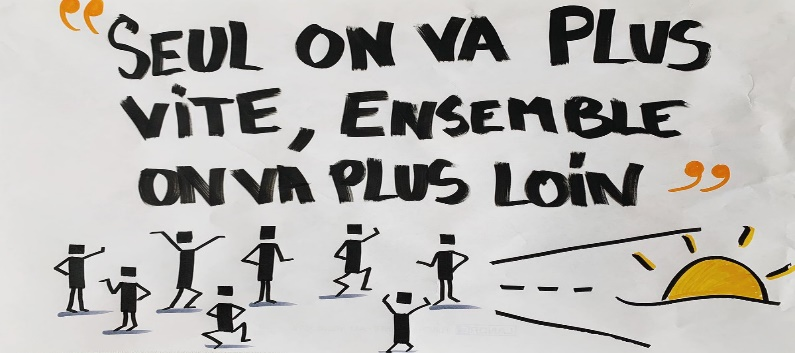 “ SEUL ON VA PLUS
VITE, ENSEMBLE
ON VA PLUS LOIN ”